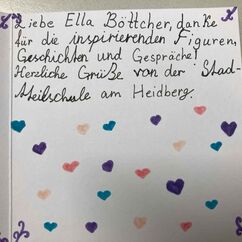 Liebe Ella Böttcher, danke
für die inspirierenden Figuren,
Geschichten und Gespräche!
Herzliche Grüße von der Stad-
tteilschule am Heidberg.